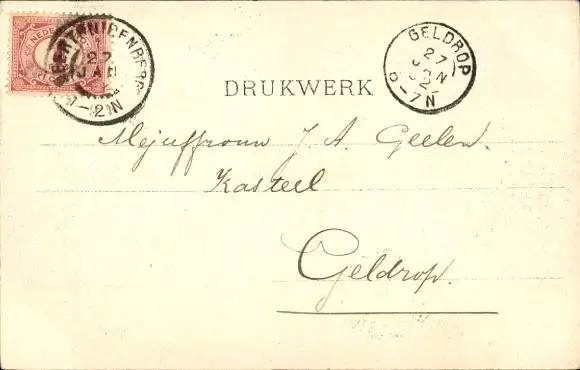 GEERTRUIDENBERG
27
JAN
-2N
NEDER
GELDROP
27
JAN
2
6-7N
DRUKWERK
Mejuffrouw J. A. Geelen.
Kasteel
Geldrop.